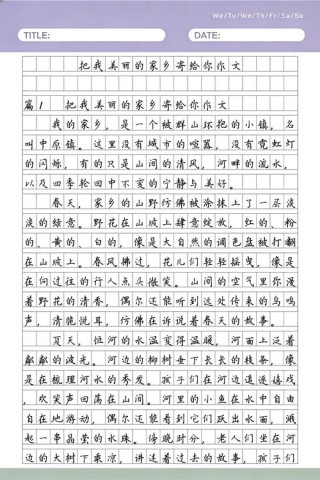 We/Tu/We/Th/Fr/Sa/Su
TITLE:
DATE:
把我美丽的家乡寄给你作文
篇1 把我美丽的家乡寄给你作文
我的家乡,是一个被群山环抱的小镇,名
叫中原镇。这里没有城市的喧嚣,没有霓虹灯
的闪烁,有的只是山间的清风,河畔的流水,
以及四季轮回中不变的宁静与美好。
春天,家乡的山野仿佛被涂抹上了一层淡
淡的绿意。野花在山坡上肆意绽放,红的、粉
的、黄的、白的,像是大自然的调色盘被打翻
在山坡上。春风拂过,花儿们轻轻摇曳,像是
在向过往的行人点头微笑。山间的空气里弥漫
着野花的清香,偶尔还能听到远处传来的鸟鸣
声,清脆悦耳,仿佛在诉说着春天的故事。
夏天,恒河的水温变得温暖,河面上泛着
粼粼的波光。河边的柳树垂下长长的枝条,像
是在梳理河水的秀发。孩子们在河边追逐嬉戏
,欢笑声回荡在山间。河里的小鱼在水中自由
自在地游动,偶尔还能看到它们跃出水面,溅
起一串晶莹的水珠。傍晚时分,老人们坐在河
边的大树下乘凉,讲述着过去的故事,孩子们